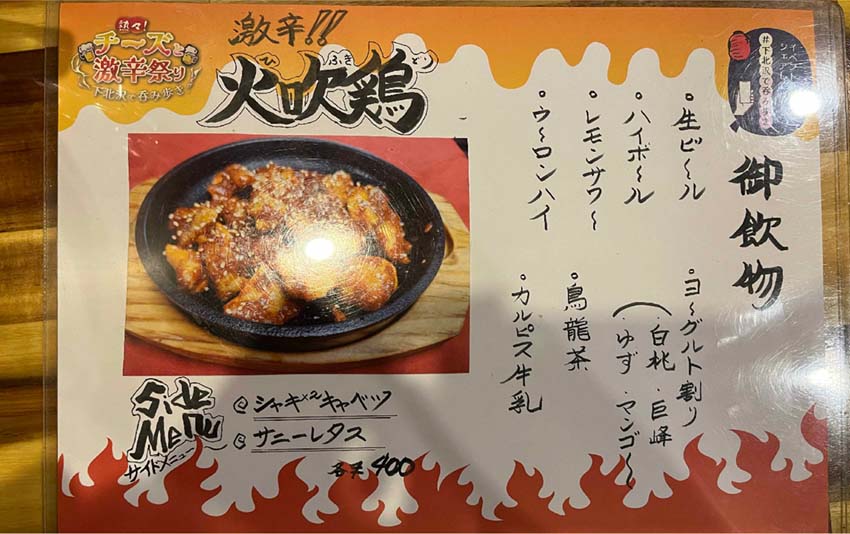 熱々!
チーズと
激辛祭り
下北沢で呑み歩き
激辛!!
ひ ふき どり
火吹鶏
#下北沢で呑み歩き
御飲物
・生ビール
・ハイボール
・レモンサワー
・ウーロンハイ
・ヨーグルト割り
(・白桃・巨峰
・ゆず・マンゴー)
・烏龍茶
・カルピス牛乳
Side
Menu
サイドメニュー
シャキ×2キャベツ
サニーレタス
各 400